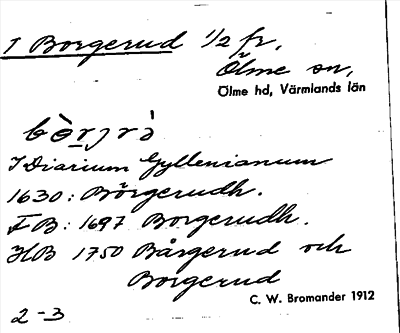 1 Borgerud 1/2 fr,
Ölme sn,
Ölme hd, Värmlands län
bòrjrà
I Diarium Gyllenianum
1630: Börgerudh.
FB: 1697 Borgerudh.
HB 1750 Bårgerud och
Borgerud
C. W. Bromander 1912
2-3